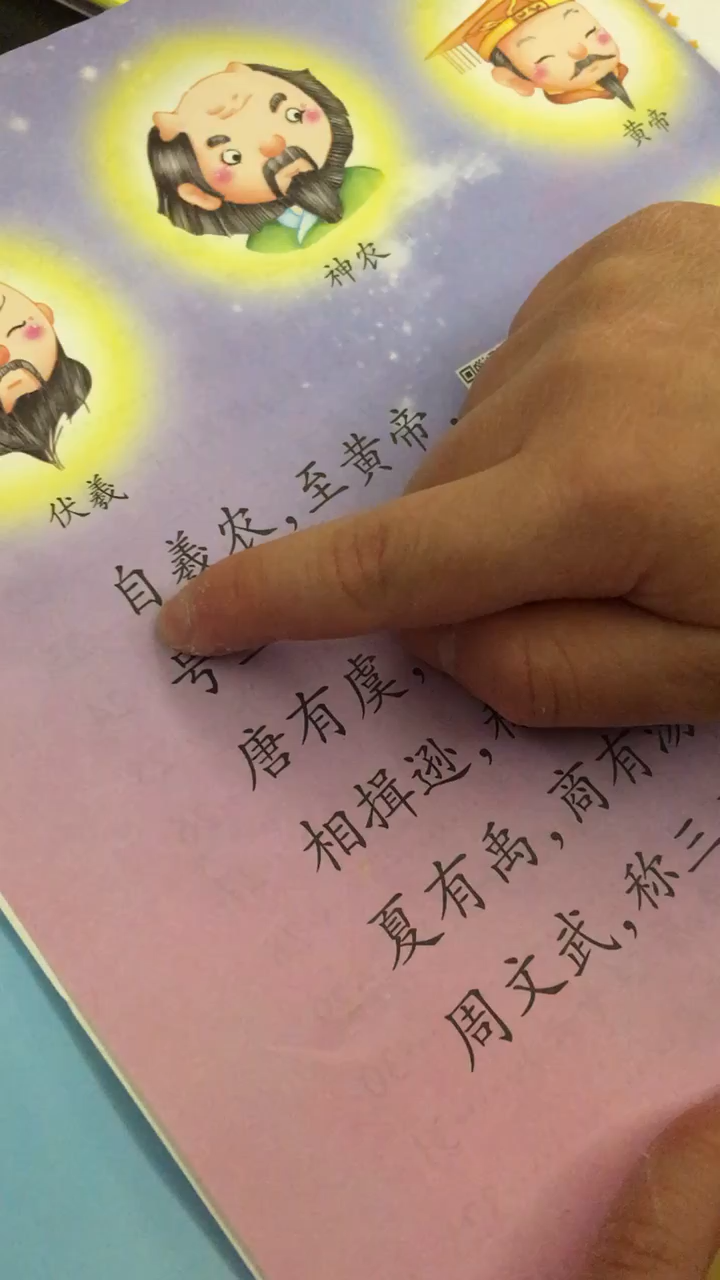 黄帝
神农
伏羲
自羲农,至黄帝,
号
唐有虞,
相揖逊,称
夏有禹,商有汤
周文武,称三